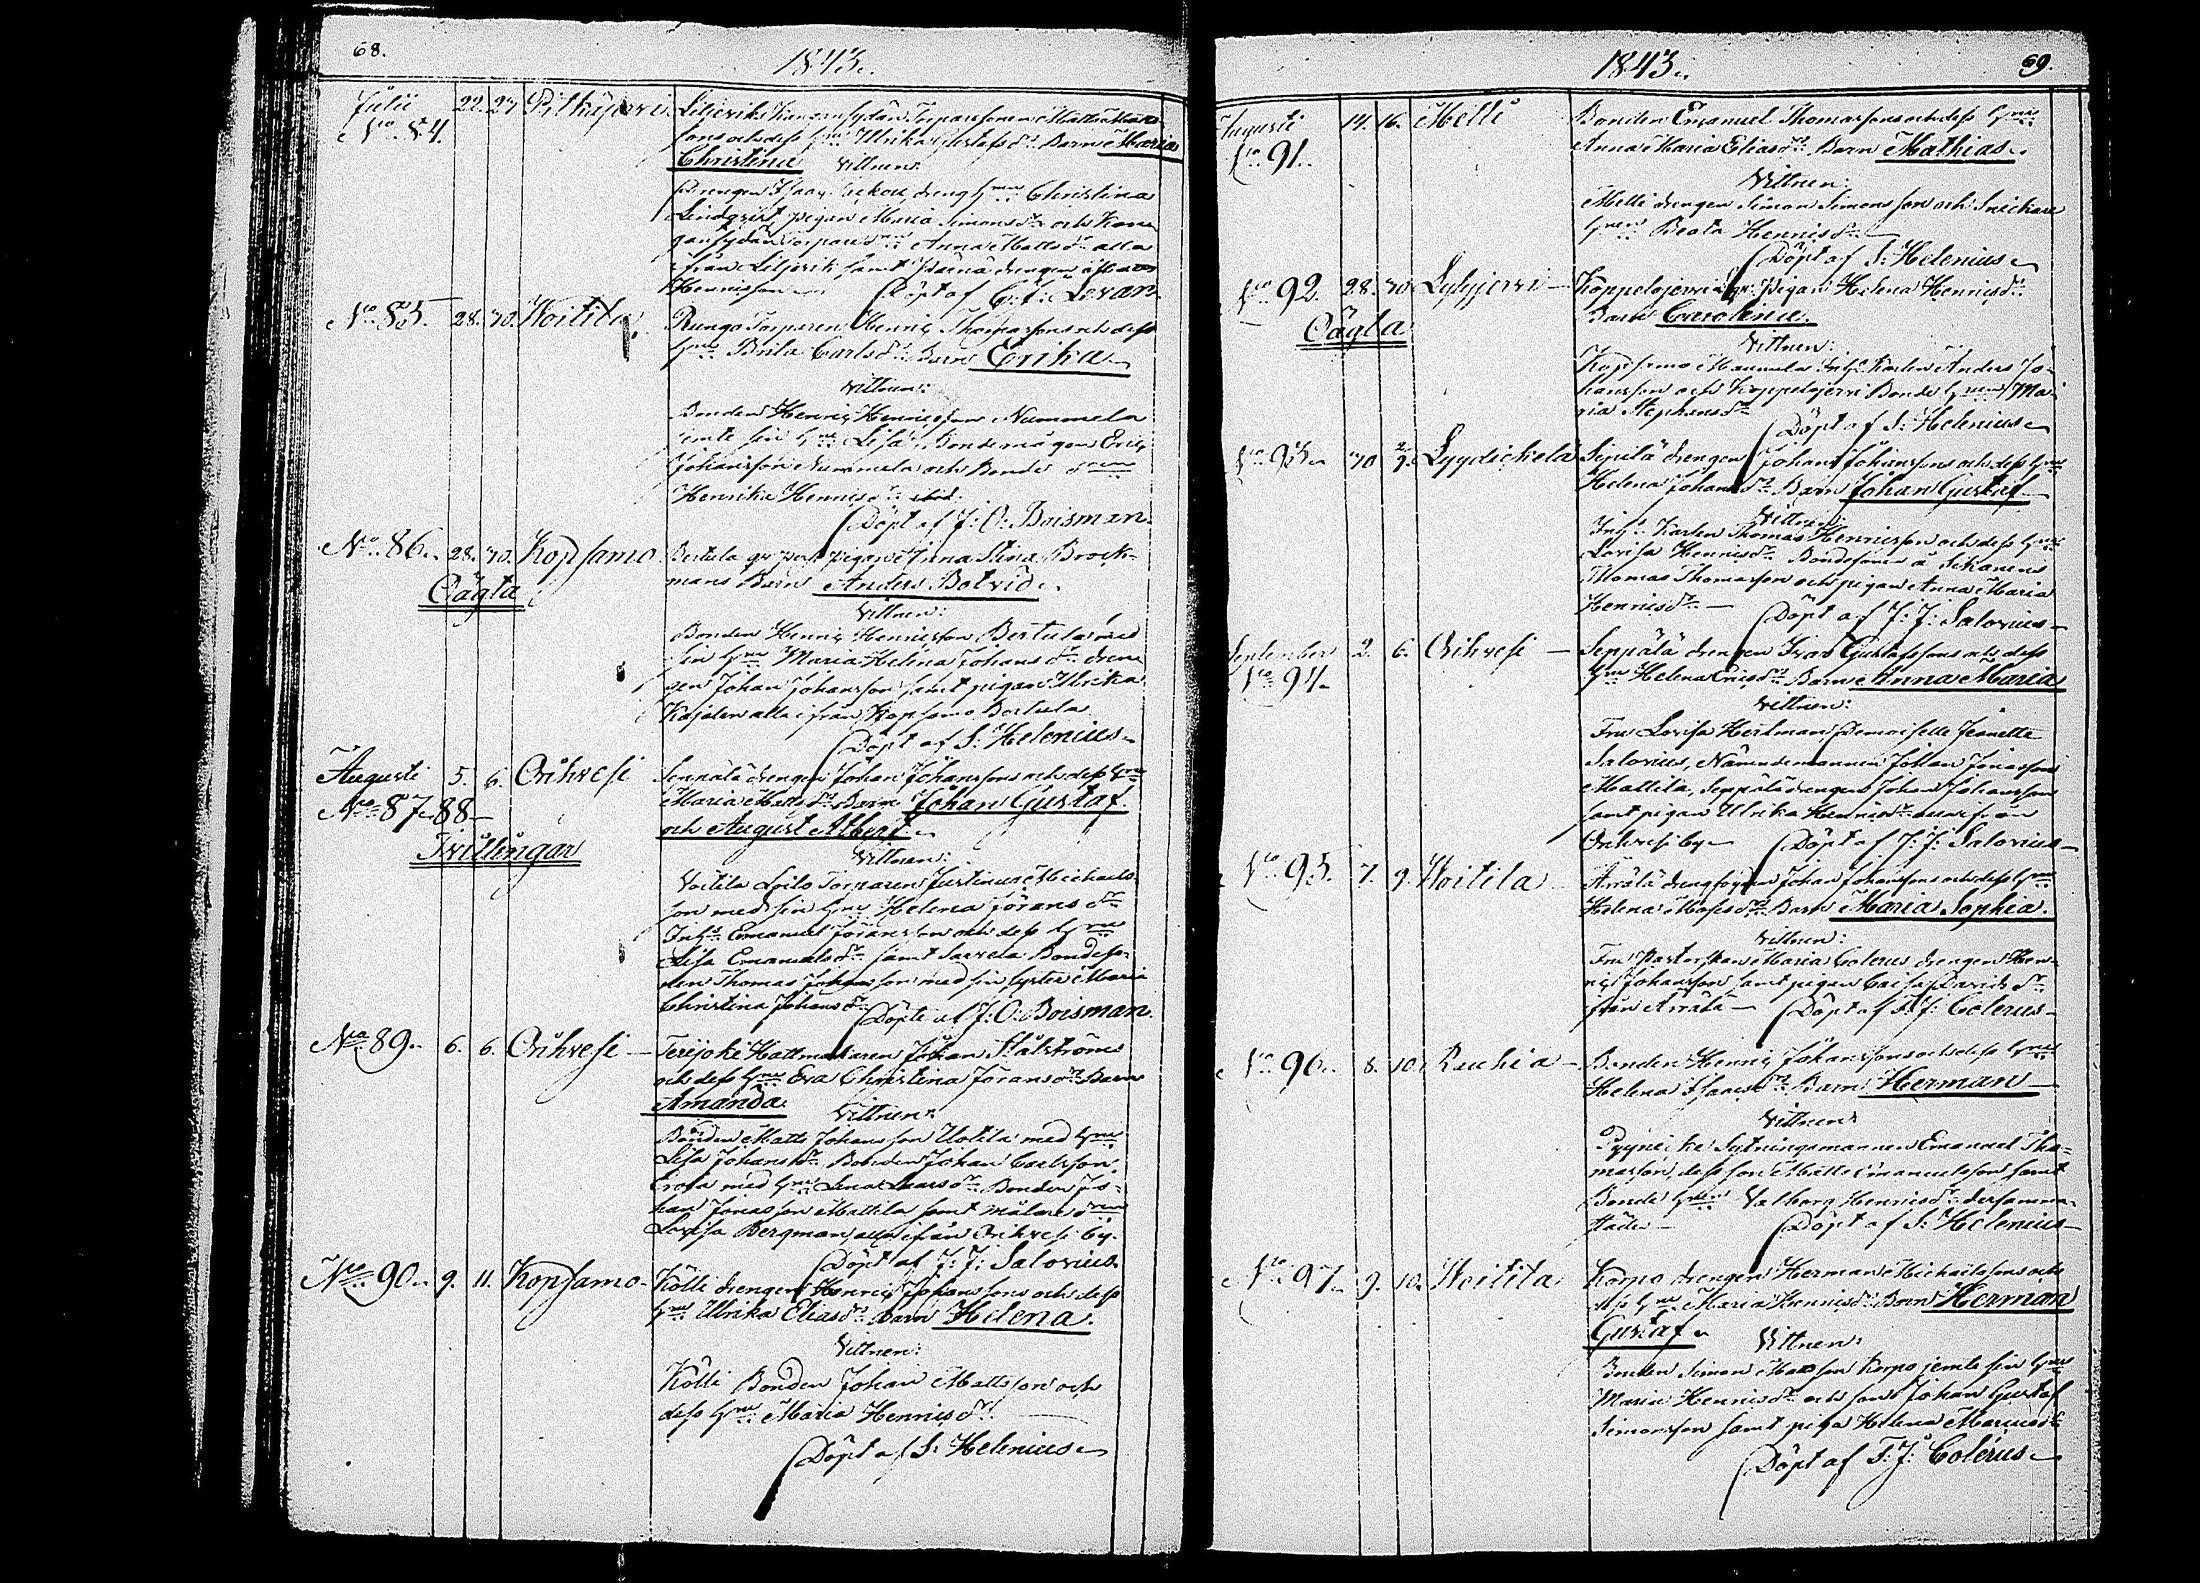 68.
1843.
Julii 22. 27 Pitkäjervi. Liljeriks Kangansydän Torparesonen Matts Matts-
No. 84. sons och dess Hru Ulrika Gustafsdr Barn Maria
Christina
Vittnen:
Drengen Isaac dreng Hrun Christina
Lindqvist, pigan Maria Simonsdr och Kan-
gansydän Torpare Anna Mattsdr alla
ifrån Liljerik samt drengen
Henricsson Döpt af G. f: Lovan
No. 85. 28. 30. Woitila. Runga Torparen Henric Thomassons och dess
Hru Brita Carlsdr Barn Erika
Vittnen:
Bonden Henric Henricsson Nummela
jemte sin Hru Lisa, Bondemågen Eric
Johansson Nummela och Bonde
Henrika Henricsdr ibid.
Döpt af J: O: Boisman.
No. 86. 28. 30. Kopsamo. Bertula qv. pigan Anna Stina Brock-
Oägta mans Barn Anders Botvid.
Vittnen:
Bonden Henric Henricsson Bertula med
sin Hru Maria Helena Johansdr dren-
gen Johan Johansson samt pigan Ulrika
Kajalen alla ifrån Kopsamo Bertula
Döpt af S: Helenius
Augusti 5. 6. Orihvesi Seppälä drengen Johan Johanssons och dess Hru
No. 87-88 Maria Mattsdr Barn Johan Gustaf
och August Albert.
Tvillingar
Vittnen:
Voitila Loilo Torparen Justinus Michaels-
son med sin Hru Helena Joransdr
Inhs. Emanuel Joransson och dess Hru
Lisa Emanuelsdr samt Sarvela Bondeso-
nen Thomas Johansson med sin syster Maria
Christina Johansdr
Döpte af J: O: Boisman.
No. 89. 6. 6. Orihvesi Terijoki Hattmakaren Johan Stålströms
och dess Hru Eva Christina Joransdr Barn
Amanda
Vittnen:
Bonden Matts Johansson Uotila med Hru
Lisa Johansdr Bonden Johan Carlsson
Erola med Hru Lena Larsdr Bonden Jo-
han Jonasson Mattila samt målare
Lovisa Bergman, alla ifrån Orihvesi by.
Döpt af J: J: Salovius.
No. 90. 9. 11. Kopsamo Kölli drengen Henric Johanssons och dess
Hru Ulrika Eliasdr Barn Helena.
Vittnen:
Kölli Bonden Johan Mattsson och
dess Hru Maria Henricsdr
Döpt af S: Helenius
1843.
69.
Augusti 14. 16. Melli Bonden Emanuel Thomassons och dess Hru
No. 91. Anna Maria Eliasdr Barn Mathias
Vittnen:
Melli drengen Simon Simonsson och Snickare
Hrun Beata Henricsdr
Döpt af S: Helenius
No. 92. 28. 30. Lylyjervi Koppelojervi qv. Pigan Helena Henricsdr
Oägta Barn Carolena.
Vittnen:
Kopsamo Mannula Inhs. Karlen Anders Jo-
hansson och Koppelojervi Bonde Hrun Ma-
ria Stephansdr
Döpt af S: Helenius
No. 93. 30 Lyydickelä Sipilä drengen Johan Johanssons och dess Hru
Helena Johansdr Barn Johan Gustaf
Vittnen:
Inhs. Karlen Thomas Henricsson och dess Hru
Lovisa Henricsdr Bondesonen
Thomas Thomasson och pigan Anna Maria
Henricsdr
Döpt af J: J: Salovius
September 2. 6. Orihvesi Seppälä drengen Ivar Gustafssons och dess
No. 94. Hru Helena Ericsdr Barn Anna Maria
Vittnen:
Fru Lovisa Heilman, Demoiselle Jeanette
Salovius, Nämndemannen Johan Jonasson
Mattila, Seppälä drengen Johan Johansson
samt pigan Ulrika Henricsdr ifrån
Orihvesi by
Döpt af J: J: Salovius
No. 95. 7. 9. Woitila Arrälä Johan Johanssons och dess Hru
Helena Mosesdr Barn Maria Sophia.
Vittnen:
Fru Pastorskan Maria Colerus drengen Hen-
ric Johansson samt pigan Caisa Davidsdr
ifrån Arrälä
Döpt af F: J: Colerus
No. 96. 8. 10. Ruuhia Bonden Henric Johanssons och dess Hru
Helena Isaacsdr Barn Herman
Vittnen:
Sytningsmannen Emanuel Tho-
masson, dess son Matts Emanuelsson samt
Bonde Hrun Valborg Henricsdr dersamma-
städes
Döpt af S: Helenius
No. 97. 9. 10. Woitila Korpo drengen Herman Michaelssons och
dess Hru Maria Henricsdr Barn Herman
Gustaf
Vittnen:
Bonden Simon Mattsson Korpo jemte sin Hru
Maria Henricsdr och son Johan Gustaf
Simonsson samt piga Helena
Döpt af F: J: Colérus